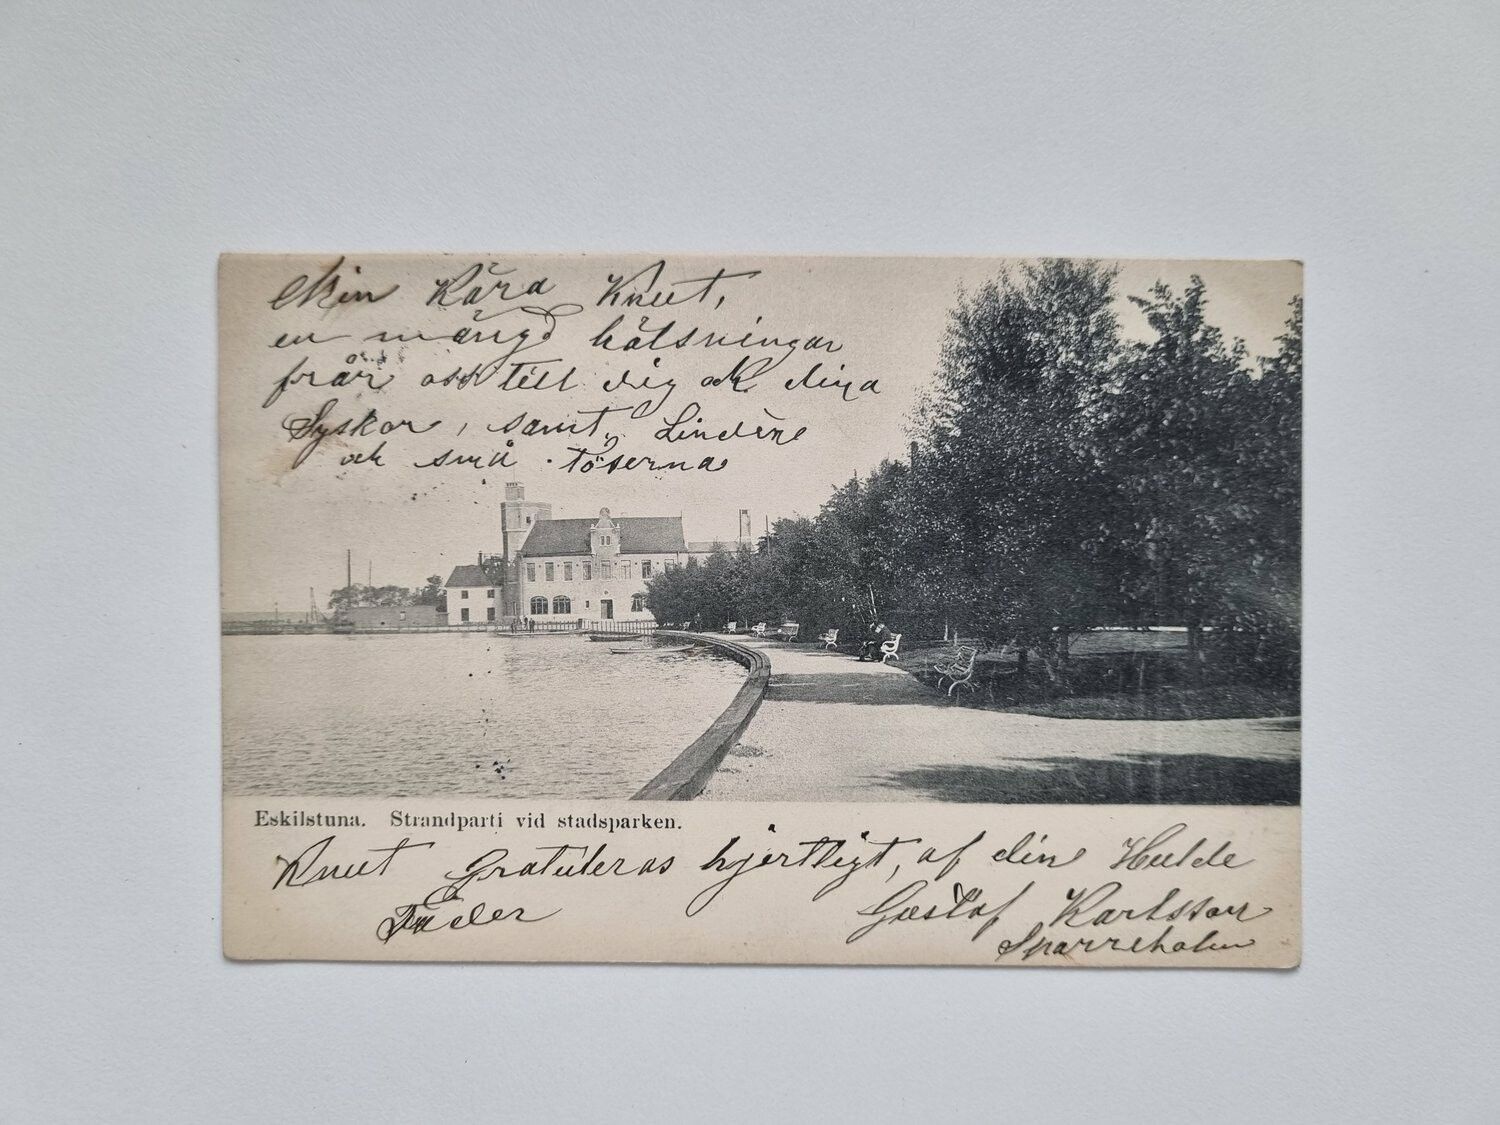 Min Kära Knut,
en mängd hälsningar
från oss till dig ock dina
Syskor, samt, Lindéne
ock små töserna
Eskilstuna. Strandparti vid stadsparken.
Knut Gratuleras hjertligt, af din Hulde
Fader
Gustaf Karlsson
Sparreholm